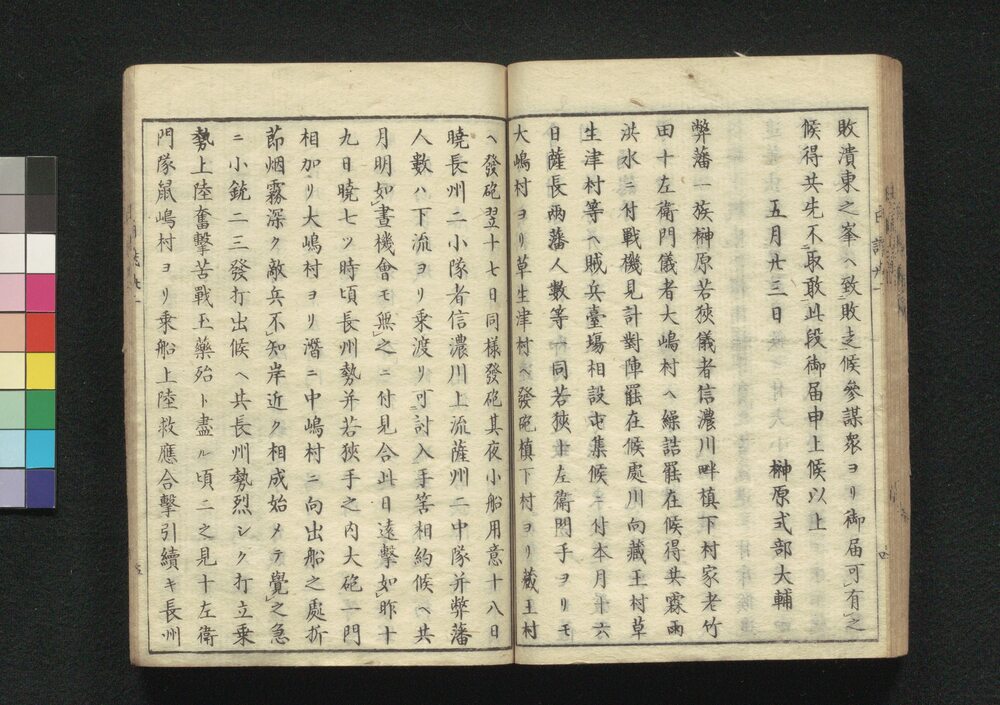 敗潰東之峯ヘ致敗走候參謀衆ヨリ御届可有之
候得共先不取敢此段御届申上候以上
五月廿三日 榊原式部大輔
弊藩一族榊原若狹儀者信濃川畔槙下村家老竹
田十左衛門儀者大嶋村ヘ繰詰罷在候得共霖雨
洪水付戰機見計對陣罷在候處川向藏王村草
生津村等ヘ賊兵臺塲相設屯集候ニ付本月十六
日薩長兩藩人數等一同若狹十左衛門手ヨリモ
大嶋村ヨリ草生津村ヘ發砲槙下村ヨリ藏王村
ヘ發砲翌十七日同樣發砲其夜小船用意十八日
曉長州二小隊者信濃川上流薩州二中隊并弊藩
人數ハ下流ヨリ乘渡リ可討入手筈相約候ヘ共
月明如晝機會モ無之ニ付見合此日遠擊如昨十
九日曉七ツ時頃長州勢并若狹手之内大砲一門
相加リ大嶋村ヨリ潛ニ中嶋村ニ向出船之處折
節烟霧深ク敵兵不知岸近ク相成始メテ覺之急
ニ小銃二三發打出候ヘ共長州勢烈シク打立乘
勢上陸奮擊苦戰玉藥殆ト盡ル頃ニ之見十左衛
門隊鼠嶋村ヨリ乘船上陸救應合擊引續キ長州